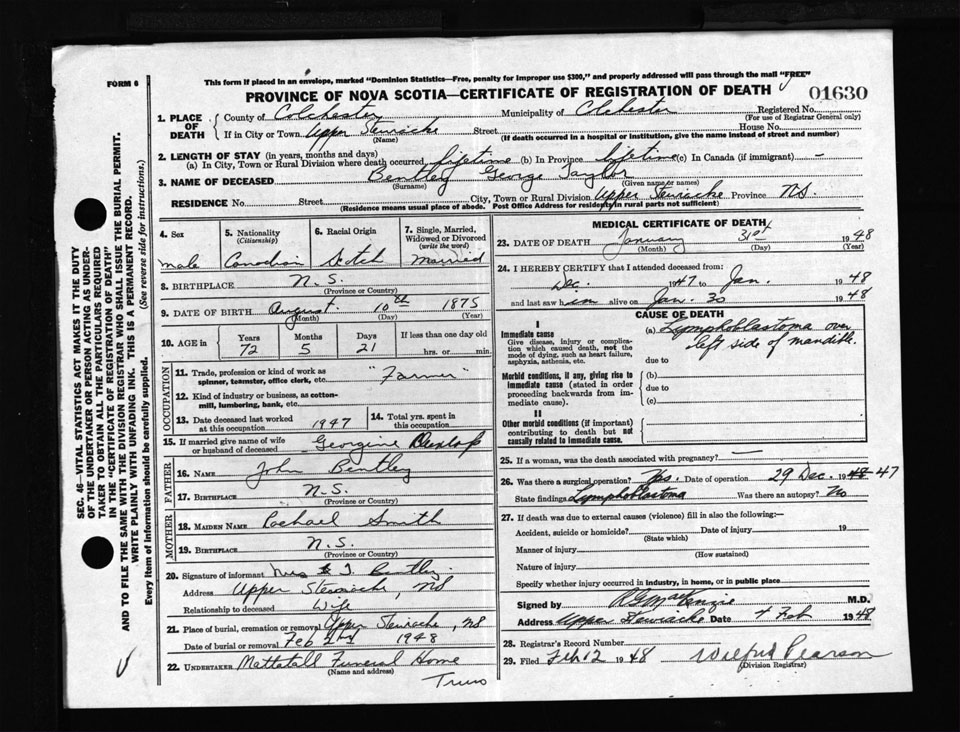 This form if placed in an envelope, marked "Dominion Statistics—Free, penalty for improper use $300," and properly addressed will pass through the mail "FREE"
FORM 6
PROVINCE OF NOVA SCOTIA—CERTIFICATE OF REGISTRATION OF DEATH
01630
SEC. 46—VITAL STATISTICS ACT MAKES IT THE DUTY
OF THE UNDERTAKER OR PERSON ACTING AS UNDER-
TAKER TO OBTAIN ALL THE PARTICULARS REQUIRED
IN THE "CERTIFICATE OF REGISTRATION OF DEATH"
AND TO FILE THE SAME WITH THE DIVISION REGISTRAR WHO SHALL ISSUE THE BURIAL PERMIT.
WRITE PLAINLY WITH UNFADING INK. THIS IS A PERMANENT RECORD.
Every item of Information should be carefully supplied. (See reverse side for instructions.)
1. PLACE OF DEATH
County of Colchester Municipality of Colchester Registered No.
(For use of Registrar General only)
If in City or Town Upper Stewiacke Street House No.
(Name) (If death occurred in a hospital or institution, give the name instead of street and number)
2. LENGTH OF STAY (in years, months and days)
(a) In City, Town or Rural Division where death occurred lifetime (b) In Province lifetime (c) In Canada (if immigrant) —
3. NAME OF DECEASED Bentley George Taylor
(Surname) (Given name or names)
RESIDENCE No. Street City, Town or Rural Division Upper Stewiacke Province N.S.
(Residence means usual place of abode. Post Office Address for residents in rural parts not sufficient)
4. Sex
male
5. Nationality
(Citizenship)
Canadian
6. Racial Origin
Scotch
7. Single, Married, Widowed or Divorced
(write the word)
Married
8. BIRTHPLACE N.S.
(Province or Country)
9. DATE OF BIRTH August 10th 1875
(Month) (Day) (Year)
10. AGE in Years Months Days If less than one day old
72 5 21 hrs. or min.
OCCUPATION
11. Trade, profession or kind of work as spinner, teamster, office clerk, etc. "Farmer"
12. Kind of industry or business, as cotton-mill, lumbering, bank, etc.
13. Date deceased last worked at this occupation 1947
14. Total yrs. spent in this occupation
15. If married give name of wife or husband of deceased Georgine Dunlap
FATHER
16. NAME John Bentley
17. BIRTHPLACE N.S.
MOTHER
18. MAIDEN NAME Rachael Smith
19. BIRTHPLACE N.S.
(Province or Country)
20. Signature of informant Mrs G. T. Bentley
Address Upper Stewiacke, NS
Relationship to deceased Wife
21. Place of burial, cremation or removal Upper Stewiacke, NS
Date of burial or removal Feb 2nd 1948
22. UNDERTAKER Mattatall Funeral Home
(Name and address)
Truro
MEDICAL CERTIFICATE OF DEATH
23. DATE OF DEATH January 31st 1948
(Month) (Day) (Year)
24. I HEREBY CERTIFY that I attended deceased from:
Dec. 1947 to Jan. 1948
and last saw him alive on Jan. 30 1948
CAUSE OF DEATH
I
Immediate cause
Give disease, injury or complication which caused death, not the mode of dying, such as heart failure, asphyxia, asthenia, etc.
(a) Lymphoblastoma over
left side of mandible.
due to
Morbid conditions, if any, giving rise to immediate cause (stated in order proceeding backwards from immediate cause).
(b)
due to
(c)
II
Other morbid conditions (if important) contributing to death but not causally related to immediate cause.
25. If a woman, was the death associated with pregnancy? —
26. Was there a surgical operation? Yes. Date of operation 29 Dec. 1948 47
State findings Lymphoblastoma Was there an autopsy? No
27. If death was due to external causes (violence) fill in also the following:—
Accident, suicide or homicide? Date of injury 19
(State which)
Manner of injury
(How sustained)
Nature of injury
Specify whether injury occurred in industry, in home, or in public place
Signed by R G MacKenzie M.D.
Address Upper Stewiacke Date 7 Feb 1948
28. Registrar's Record Number
29. Filed Feb 12 1948 Wilfrid Pearson
(Division Registrar)